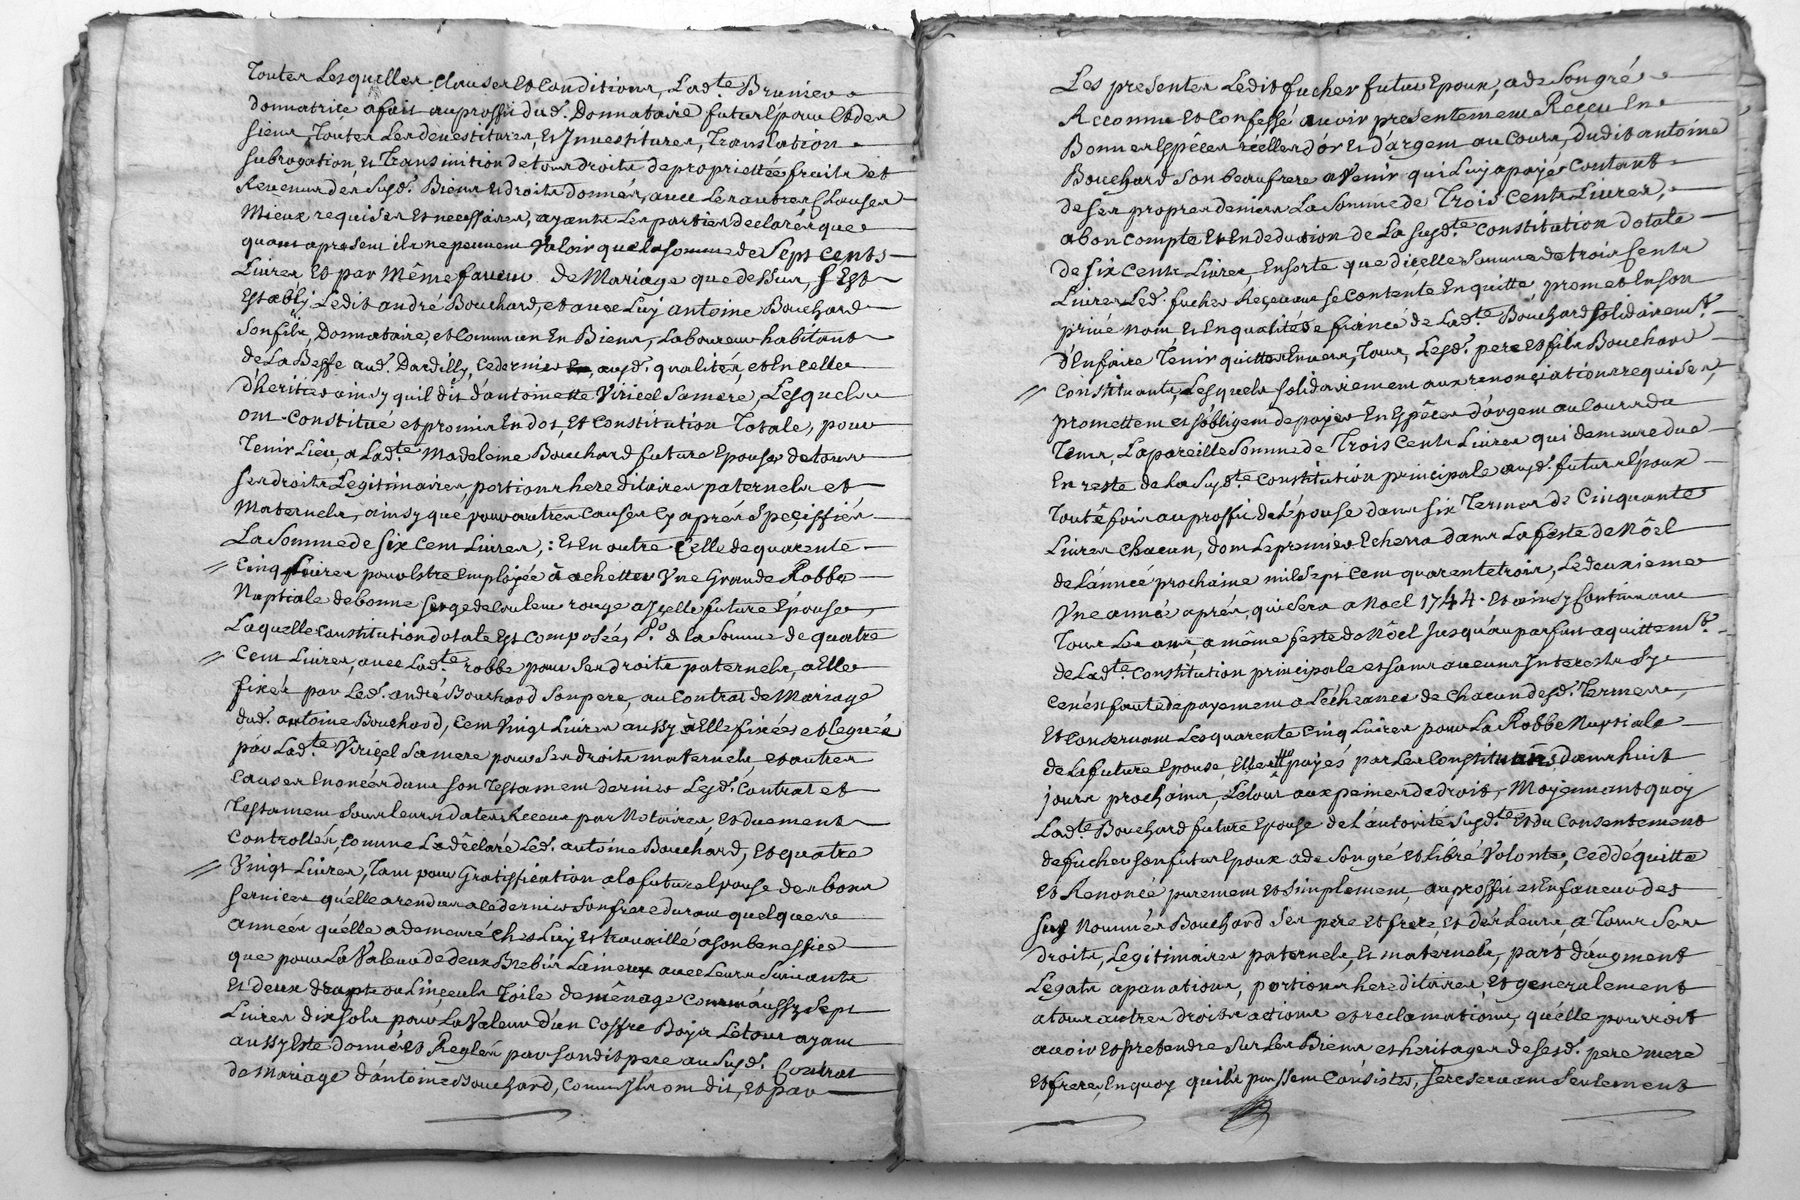 Toutes Lesquelles Clauses Et Conditions, Lad.te Brunier
donnatrice a fait au proffit dud. Donnataire futur Epoux Et des
siens, Toutes Les devestitures, Et Investitures, Translation
subrogation, Et Transmition de tous droits de propriettée fruits et
Revenus des susd. Biens Et droits donnés, avec Les autres Clauses
Mieux requises Et necessaires, ayants Les parties declarés que
quant a present ils ne peuvent Valoir que la somme de Sept cents
Livres Et par Même faveur de Mariage que dessus, s'Est
Establi Ledit andré Bouchard, et avec Luy antoine Bouchard
son fils, Donnataire, et Commun en Biens, Laboureur habitants
de La Beffe aud. Dardilly, Ce dernier ausd. qualités, et En celle
d'heritier ainsy quil dit d'antoinette Viricel Sa mere, Lesquels
ont Constitué et promis En dot, Et Constitution Totale, pour
Tenir Lieu, a Lad.te Madeleine Bouchard future Epouse de tous
ses droits Legitimaires, portions hereditaires paternels et
Maternels, ainsy que pour autres causes Cy aprés Speciffiés
La Somme de six Cent Livres, : Et En outre Celle de quarente
Cinq Livres pour Estre Employée à achetter Vne Grande Robbe
Nuptiale de bonne serge de Couleur rouge a Icelle future Epouse,
Laquelle Constitution dotale Est Composée, P.o de la Somme de quatre
Cent Livres, avec Lad.te robbe pour Ses droits paternels, a Elle
fixés par Led. andré Bouchard Son pere, au Contrat de Mariage
dud. antoine Bouchard, Cent Vingt Livres aussy à Elle fixées et Legués
par Lad.te Viricel Sa mere pour Ses droits maternels, et autres
Causes Enoncés dans son Testament dernier Lesd. Contrat et
Testament Sous leurs dates Receus par Notaires, Et duement
Controllés, Comme L'a déclaré Led. antoine Bouchard, Et quatre
Vingt Livres, Tant pour Gratiffication a la future Epouse des bons
services qu'elle a rendus a ce dernier Son frere durant quelques
années qu'elle a demeuré Chés Luy Et travaillé a son beneffice
que pour La Valeur de deux Brebis Laineux avec Leurs Suivants
Et deux draps ou Linceuls Toile de ménage Comm' aussy Sept
Livres dix sols pour La Valeur d'un Coffre Bois Le tout ayant
aussy Esté donné Et Reglés par Sondit pere au Susd. Contrat
de Mariage d'antoine Bouchard, Comme Ils ont dit, Et par
Les presentes Ledit fucher futur Epoux, a de Son gré
Reconnu Et Confessé avoir presentement Reçeu En
Bonnes Espèces réelles d'or Et d'argent au Cours, Dudit antoine
Bouchard Son beaufrere a Venir qui Luy a payé Contant
de Ses propres deniers La Somme de Trois Cents Livres,
a bon Compte Et En deduction de La Susd.te Constitution dotale
de six Cents Livres, En sorte que d'icelle Somme de trois Cents
Livres Led. fucher Reçevant Se Contente En quitte, promet En son
privé nom Et En qualité de fiancé de Lad.te Bouchard Solidairem.t
d'En faire Tenir quittes Envers, Tous, Lesd. pere et fils Bouchard
Constituants, Lesquels solidairement aux renonçiations requises,
promettent et s'obligent de payer En Espéces d'argent au Cours du
Tems, La pareille Somme de Trois Cents Livres qui demeure due
En reste de La Susd.te Constitution principale ausd. futurs Epoux
Toutêfois au proffit de L'épouse dans six Termes de Cinquante
Livres Chacun, dont Le premier Echerra dans La feste de Nôel
de L'année prochaine mil sept Cent quarente trois, Le deuxieme
Vne année aprés, qui sera a Noel 1744. Et ainsy Continuant
Tous Les ans, a même feste de Nôel Jusqu'au parfait aquittem.t
de Lad.te Constitution principale et sans aucuns Interests Sy
Ce n'est faute de payement a L'échéance de Chacun desd. Termes,
Et Concernant Les quarente Cinq Livres pour La Robbe Nuptiale
de La future Epouse, Elles payés par Les Constituants dans huit
jours prochains, Le tout aux peines de droit, Moyennant quoy
Lad.te Bouchard future Epouse de L'autorité Susd.te Et du Consentement
de fucher Son futur Epoux a de Son gré et Libre Volonté, Cedde quitte
Et Renoncé purement Et Simplement, au proffit et En faveur des
Sus Nommés Bouchard Ses pere Et frere, Et des Leurs, a Tous Ses
droits, Legitimaires paternels, Et maternels, parts d'augment
Legats apanations, portions hereditaires, Et generalement
a tous autres droits actions et reclamations, qu'elle pourroit
avoir Et pretendre Sur Les Biens et heritages de Sesd. pere mere
Et frere, En quoy qu'ils puissent Consister, Se reservant Seulement